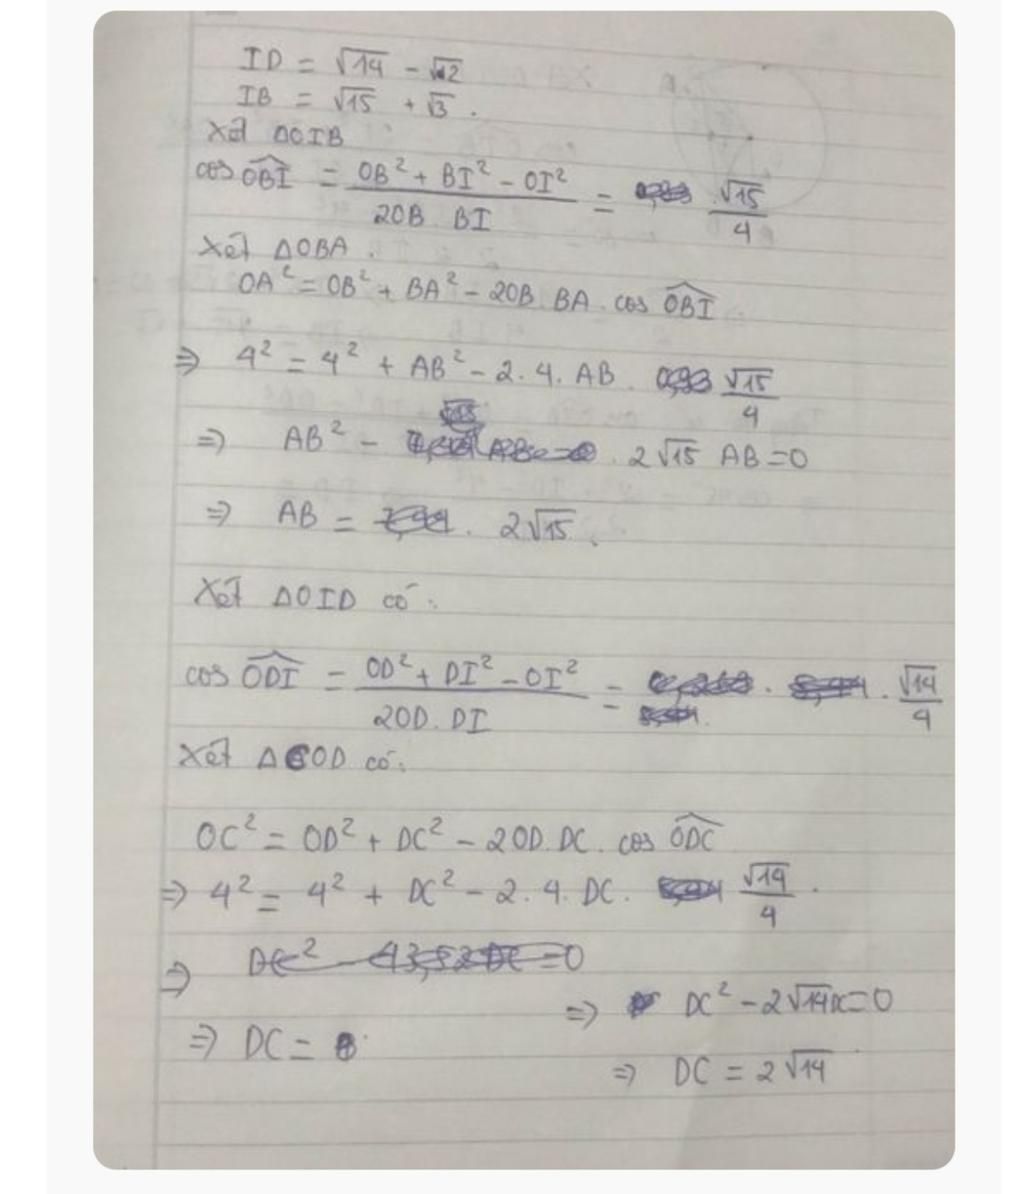 ID = √14 - √2
IB = √15 + √3 .
Xét ΔOIB
cos OBI = (OB² + BI² - OI²) / (2OB. BI) = √15/4
Xét ΔOBA .
OA² = OB² + BA² - 2OB. BA. cos OBI
⇒ 4² = 4² + AB² - 2. 4. AB. √15/4
⇒ AB² - 2√15 AB = 0
⇒ AB = 2√15 .
Xét ΔOID có :
cos ODI = (OD² + DI² - OI²) / (2OD. DI) = √14/4
Xét ΔCOD có :
OC² = OD² + DC² - 2OD. DC. cos ODC
⇒ 4² = 4² + DC² - 2. 4. DC. √14/4 .
⇒ DC² - 2√14 DC = 0
⇒ DC =
⇒ DC = 2√14